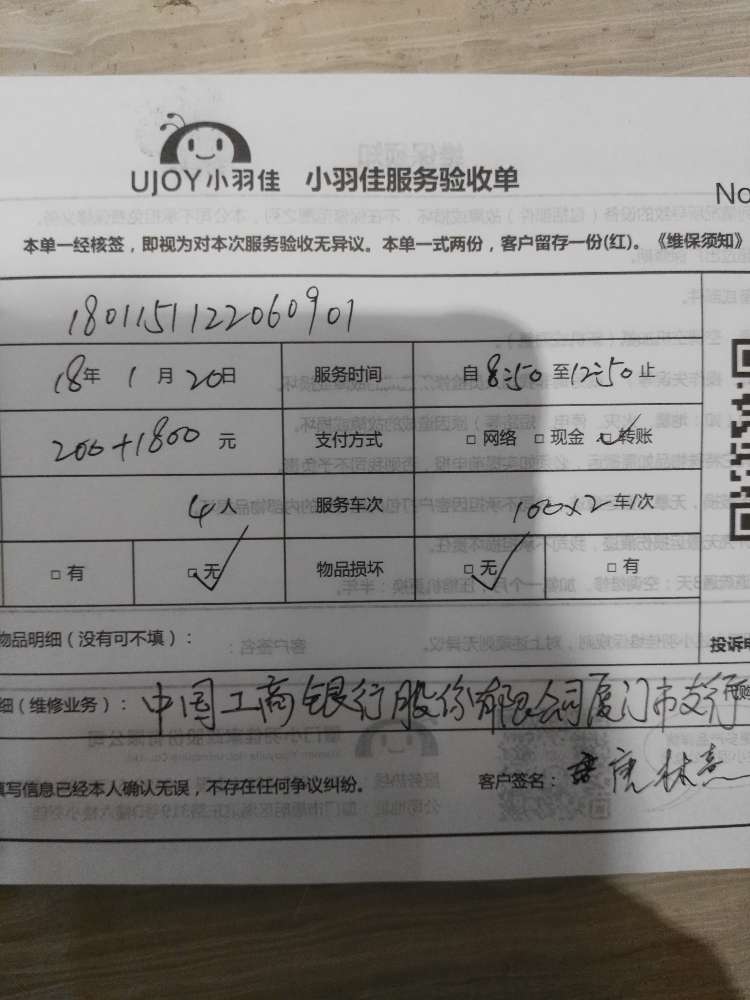 UJOY小羽佳 小羽佳服务验收单
No
本单一经核签，即视为对本次服务验收无异议。本单一式两份，客户留存一份(红)。《维保须知》
1801151122060901
18年 1 月 20日 服务时间 自8:50至12:50止
200+1800 元 支付方式 □ 网络 □ 现金 □ 转账
4人 服务车次 100×2 车/次
□ 有 □ 无 物品损坏 □ 无 □ 有
物品明细（没有可不填）：
投诉电
细（维修业务）：中国工商银行股份有限公司厦门市支行
填写信息已经本人确认无误，不存在任何争议纠纷。 客户签名：